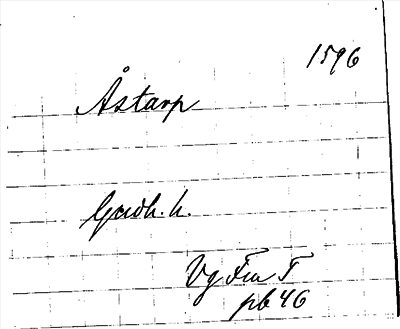 1596
Åstarp
Gudh. h.
Vg Fru T
pb 46